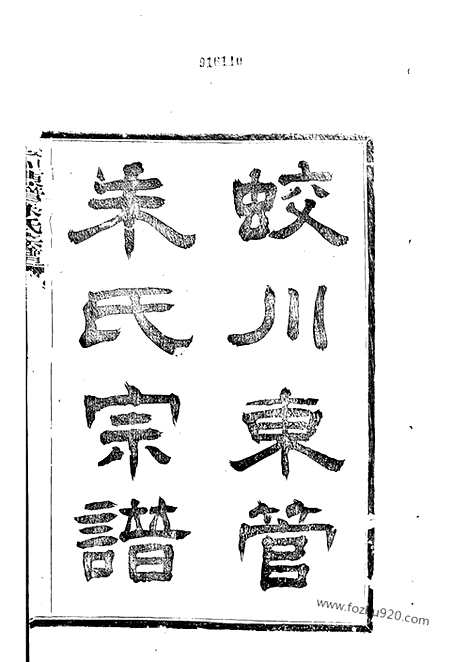 916110
蛟川東管
朱氏宗譜
www.fozhu920.com